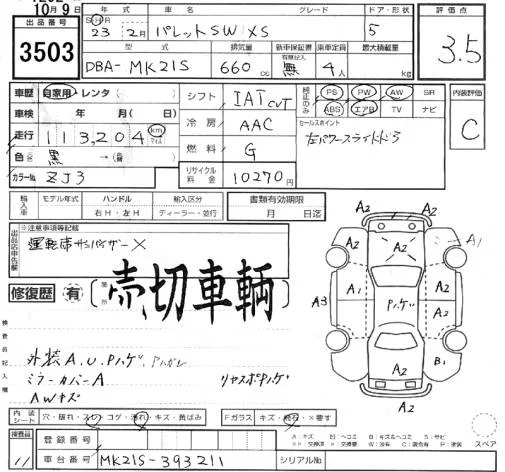 10月9日
出品番号
3503
年式
車名
グレード
ドア・形状
評価点
S H R
23年 2月
パレットSW XS
5
3.5
型式
排気量
新車保証書
乗車定員
最大積載量
DBA- MK21S
660 cc
有限記入
無
4人
kg
車歴 自家用・レンタ( )
シフト
IAT CVT
純正のみ
PS PW AW SR
ABS エアB TV ナビ
内装評価
C
車検 年(月)
冷房
AAC
セールスポイント
左パワースライドドア
走行 113,204 km マイル
燃料
G
色 黒 →
リサイクル料金
10270円
カラーNo. ZJ3
輸入車
モデル年式
ハンドル
輸入区分
書類有効期限
右H・左H
ディーラー・並行
月 日迄
出品店申告欄
※注意事項等記載
運転席サンバイザー×
修復歴 有
箇所
売切車輌
検査員記入欄
外装A.U.Pハゲ.
ミラーカバーA
リヤスポPハゲ
AWキズ
A2 A2 A2 A1
A3 A1 Pハゲ A2
A2 B1
A2
内装シート
穴・破れ・スレ・コゲ・汚れ・キズ・黄ばみ
Fガラス
キズ・飛石・×要す
A:キズ E:ヘコミ B:キズ&ヘコミ S:サビ
スペア
検査員
11
登録番号
車台番号
MK21S-393211
シリアルNo.